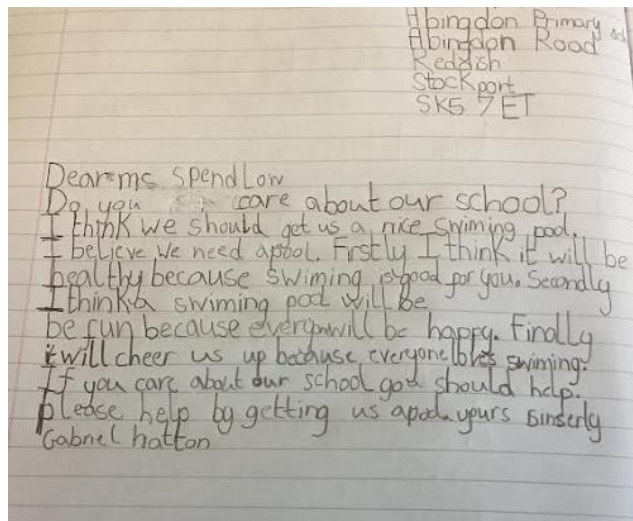 Abingdon Primary Sch
Abingdon Road
Reddish
Stockport
SK5 7ET
Dear ms Spendlow
Do you care about our school?
I think we should get us a nice swiming pool.
I believe we need apool. Firstly I think it will be
healthy because swiming is good for you. Secondly
I think a swiming pool will be
be fun because everyone will be happy. Finally
it will cheer us up because everyone loves swiming.
If you care about our school you should help.
please help by getting us apool. yours sinserly
Gabriel hatton